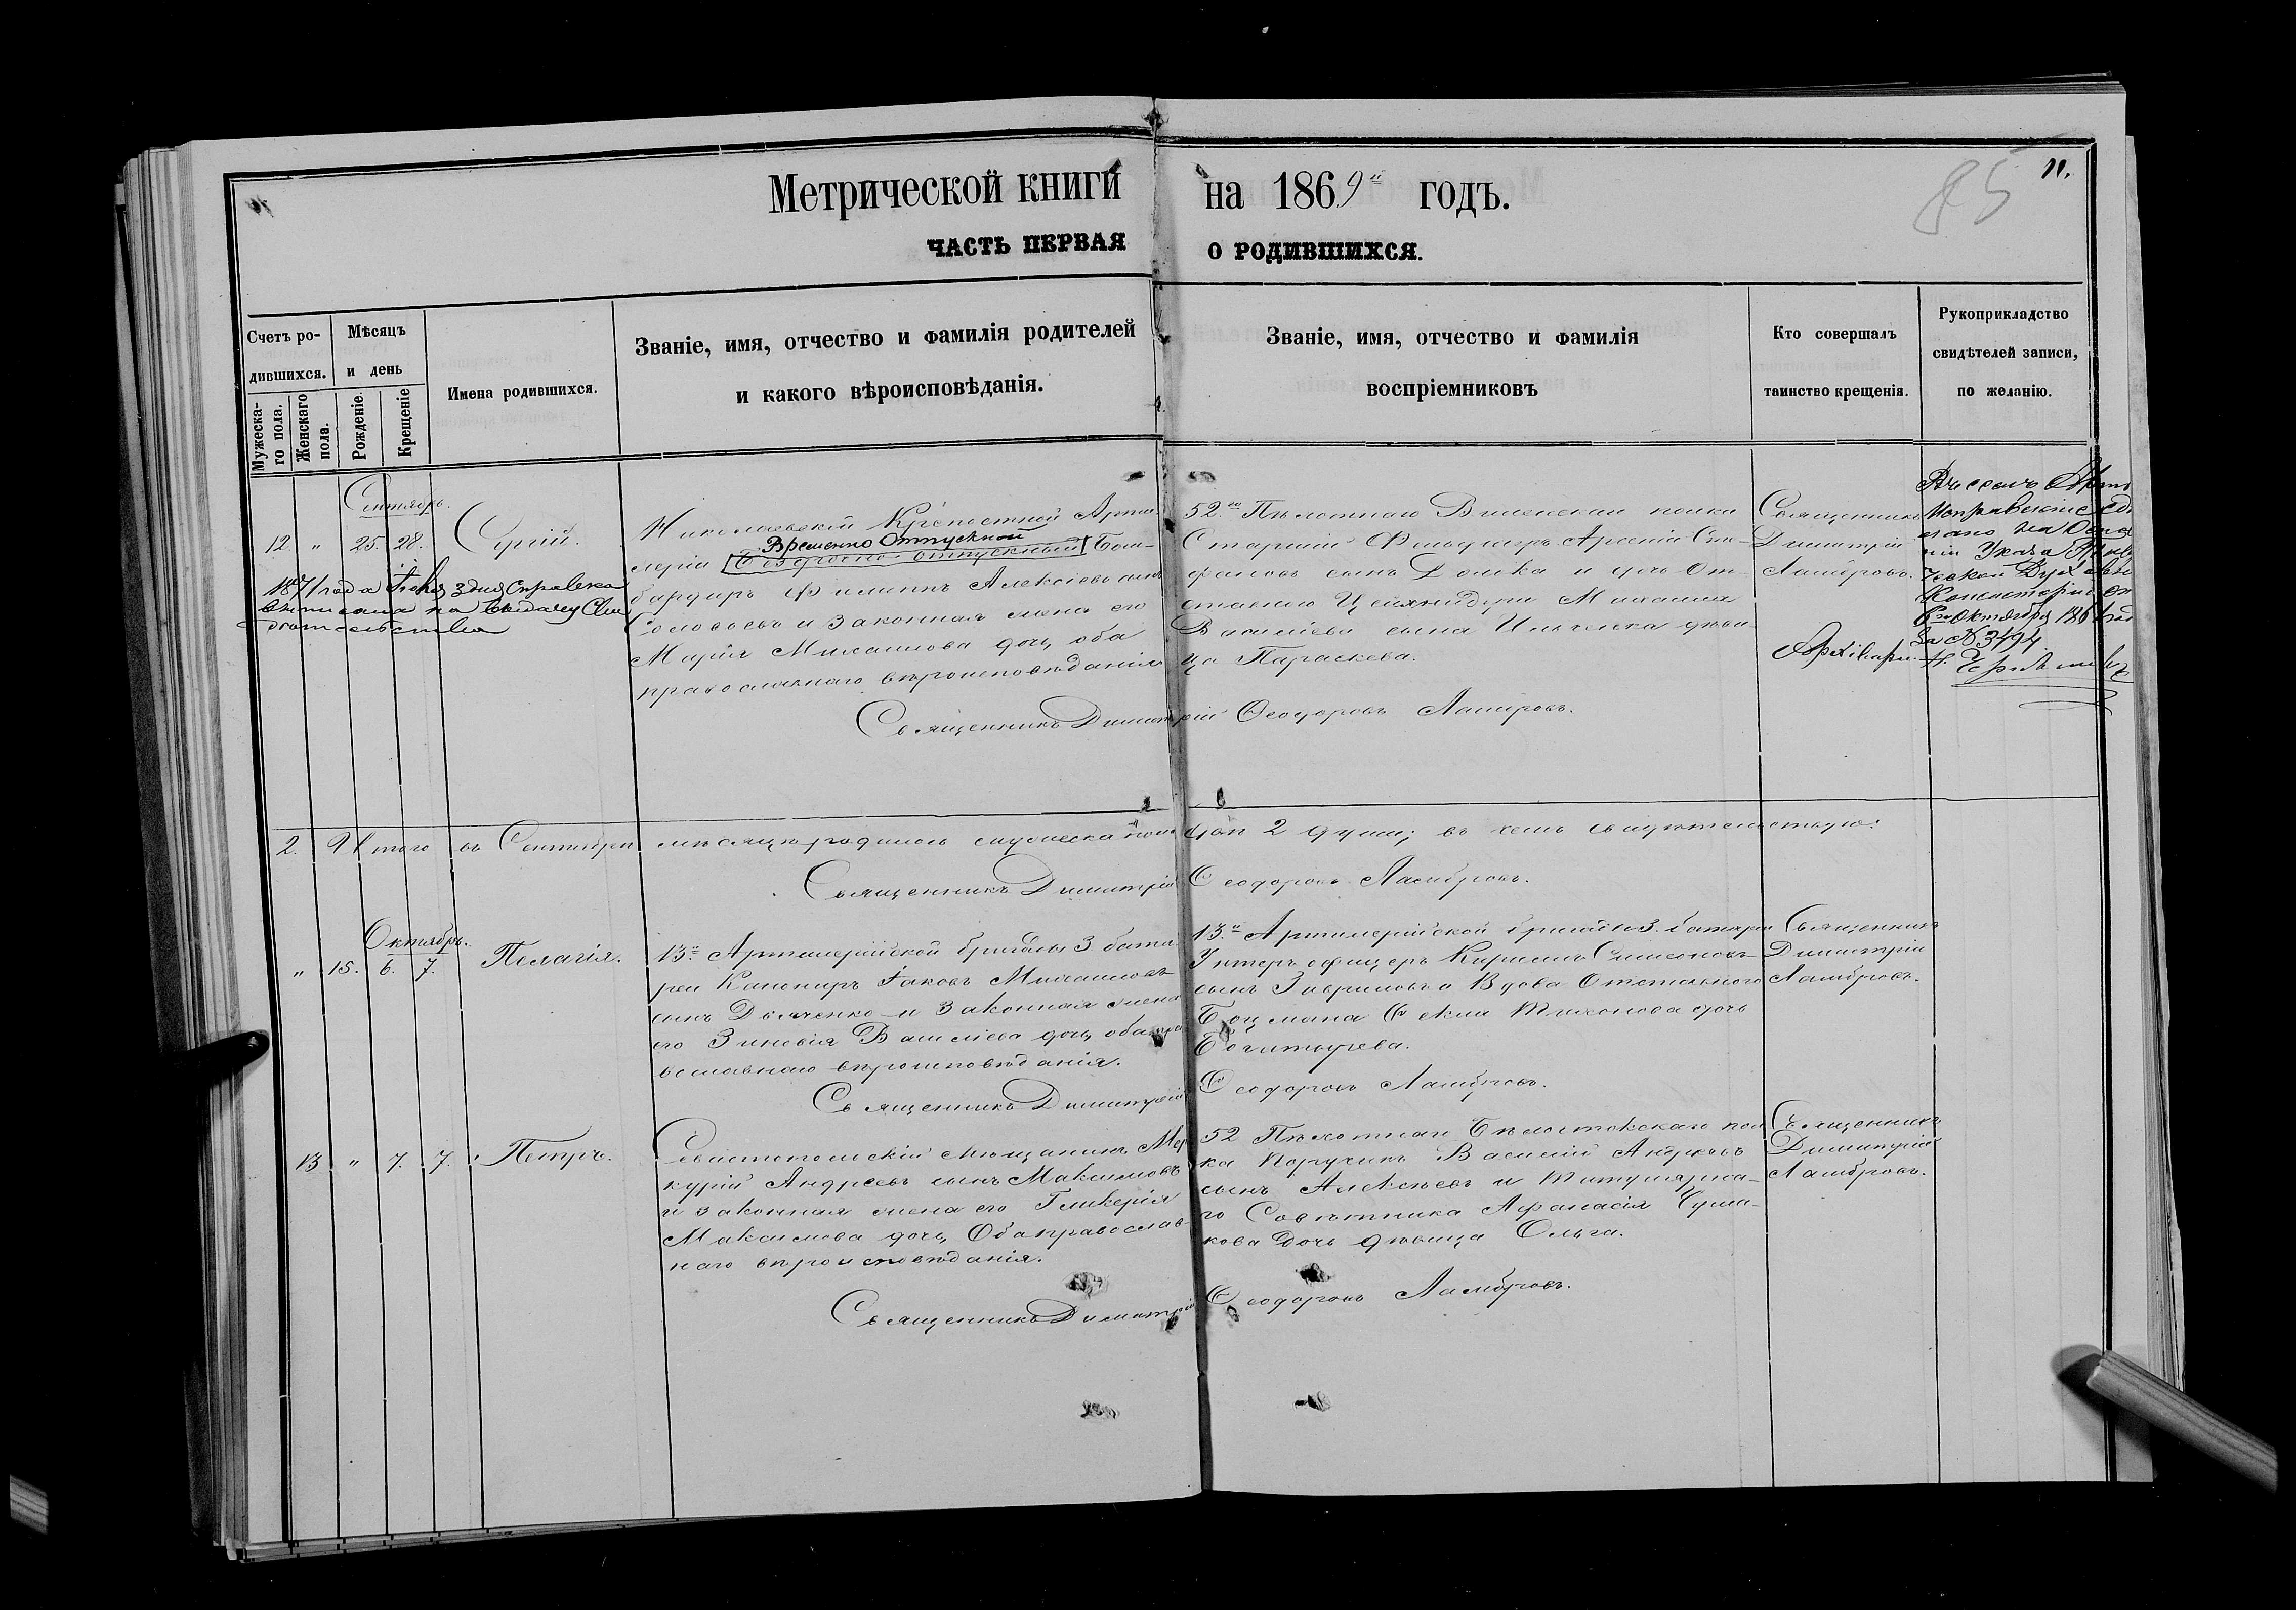 Метрической книги на 1869й годъ.
85
11.
ЧАСТЬ ПЕРВАЯ О РОДИВШИХСЯ.
Счетъ ро-
дившихся.
Мужеска-
го пола.
Женскаго
пола.
Мѣсяцъ
и день
Рожденіе.
Крещеніе
Имена родившихся.
Званіе, имя, отчество и фамилія родителей
и какого вѣроисповѣданія.
Званіе, имя, отчество и фамилія
воспріемниковъ
Кто совершалъ
таинство крещенія.
Рукоприкладство
свидѣтелей записи,
по желанію.
Сентябрь.
12. " 25. 28. Сергій.
1871 года 3 дня справка
выписана на выдачу Сви
дѣтельства
Николаевской Крѣпостной Артил-
Временно Отпускной
леріи Безсрочно отпускный Бом-
бардиръ Филиппъ Алексіевъ сынъ
Соловьевъ и законная жена его
Марія Михаилова дочь, оба
православнаго вѣроисповѣданія
52го Пѣхотнаго Виленскаго полка
Старшій Фельдшеръ Арсеній Сте-
фановъ сынъ и дочь От-
ставнаго Михаила
Василіева сына Ильченка дѣви-
ца Параскева.
Священникъ
Димитрій
Ламбровъ.
Исправленіе сдѣ
лано на Осно
ніи Указа
ческой Дух
Консисторіи от
6го Октября 186
за № 3494.
Архиварі
Священникъ Димитрій Ѳеодоровъ Ламбровъ.
2. Итого въ Сентябрѣ мѣсяцѣ родилось мужеска пола 2 души; въ чемъ свидѣтельствую:
Священникъ Димитрій Ѳеодоровъ Ламбровъ.
Октябрь.
" 15. 6. 7. Пелагія.
13й Артиллерійской бригады 3 бата-
реи Канониръ Іаковъ Михаиловъ
сынъ Дьяченко и законная жена
его Зиновія Василіева дочь, оба пра
вославнаго вѣроисповѣданія.
13й Артиллерійской бригады 3. батареи
Унтеръ офицеръ Кириллъ Симеоновъ
сынъ Гавриловъ и Вдова Отставного
Боцмана Ѳекла Тихонова дочь
Священникъ
Димитрій
Ламбровъ.
Священникъ Димитрій Ѳеодоровъ Ламбровъ.
13 " 7. 7. Петръ.
Севастопольскій мѣщанинъ Мер
курій Андреевъ сынъ Максимовъ
и законная жена его Гликерія
Максимова дочь, Оба православ-
наго вѣроисповѣданія.
52 Пѣхотнаго Бѣлостокскаго пол
ка Поручикъ Василій Андреевъ
сынъ Алексѣевъ и Титулярна-
го Совѣтника Афанасія Чума-
кова дочь дѣвица Ольга.
Священникъ
Димитрій
Ламбровъ.
Священникъ Димитрій Ѳеодоровъ Ламбровъ.